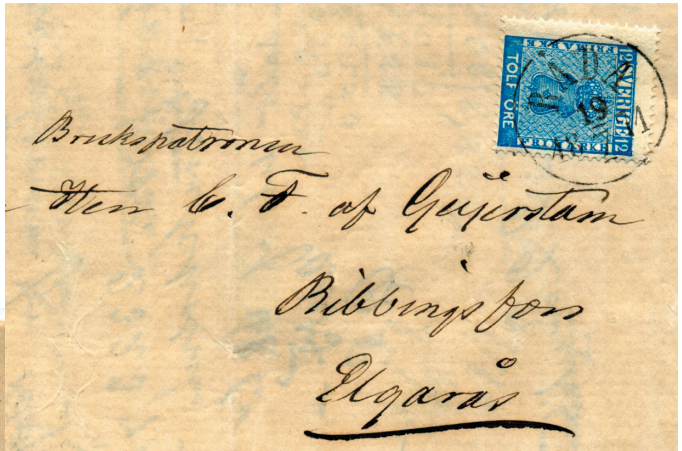 12 SVERIGE 12
FRIMÄRKE
TOLF ÖRE
FRIMÄRKE
RÅDA
19
11
Brukspatronen
Herr C. F. af Geijerstam
Ribbingsfors
Elgarås